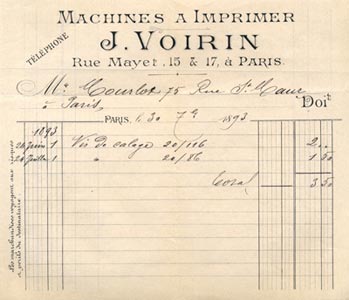 MACHINES A IMPRIMER
TÉLÉPHONE
J. VOIRIN
Rue Mayet, 15 & 17, à PARIS
Mr. Mourlot 75 Rue St. Maur
à Paris
Doit
PARIS, le 30 7bre 1893
1893
24 Juin 1 Vis de calage 20/116 2 "
24 Juillet 1 " 20/86 1 50
Total 3 50
Les marchandises voyagent aux risques
& périls du destinataire.